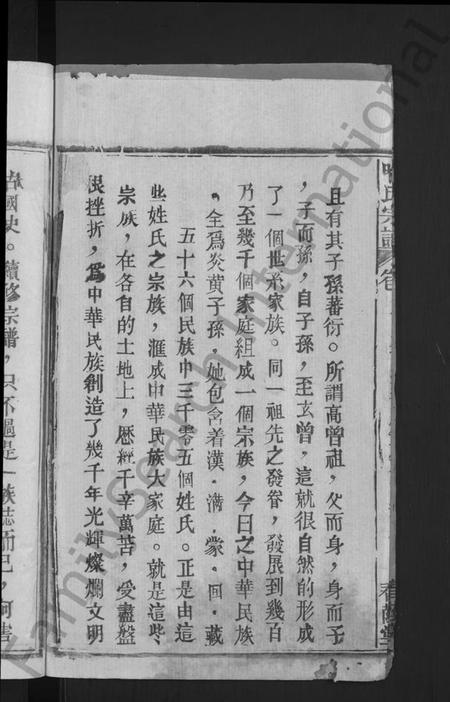 氏宗譜
且有其子孫蕃衍。所謂高曾祖，父而身，身而子
，子而孫，自子孫，至玄曾，這就很自然的形成
了一個世系家族。同一祖先之發眷，發展到幾百
乃至幾千個家庭組成一個宗族，今日之中華民族
。全爲炎黄子孫，她包含着漢．满．蒙．回．藏
五十六個民族中三千零五個姓氏。正是由這
些姓氏之宗族，滙成中華民族大家庭。就是這些
宗族，在各自的土地上，歷經千辛萬苦，受盡盤
挫折，爲中華民族創造了幾千年光輝燦爛文明
國史。續修宗譜，只不過是一族誌而已，
FamilySearch International